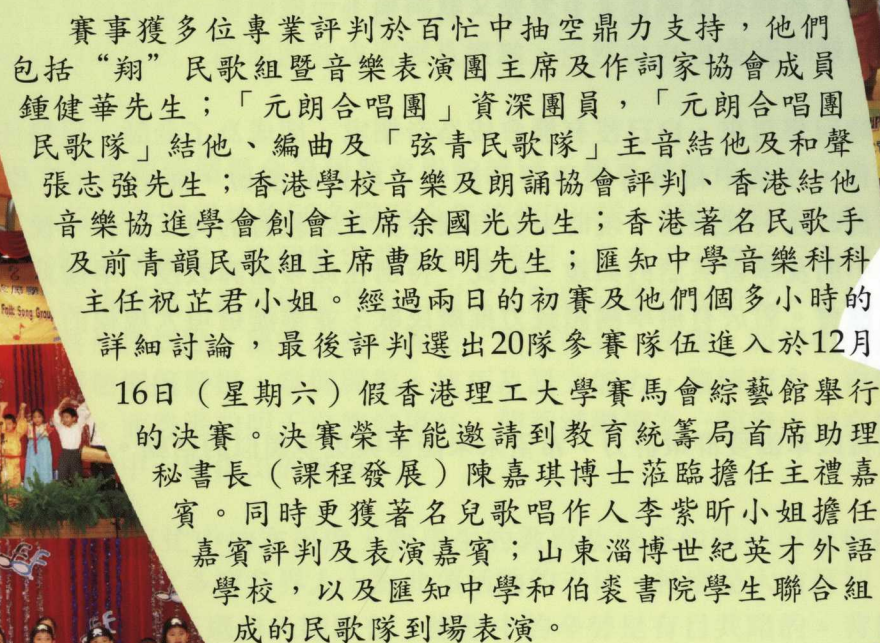 賽事獲多位專業評判於百忙中抽空鼎力支持，他們
包括“翔”民歌組暨音樂表演團主席及作詞家協會成員
鍾健華先生；「元朗合唱團」資深團員，「元朗合唱團
民歌隊」結他、編曲及「弦青民歌隊」主音結他及和聲
張志強先生；香港學校音樂及朗誦協會評判、香港結他
音樂協進學會創會主席余國光先生；香港著名民歌手
及前青韻民歌組主席曹啟明先生；匯知中學音樂科科
主任祝芷君小姐。經過兩日的初賽及他們個多小時的
詳細討論，最後評判選出20隊參賽隊伍進入於12月
16日（星期六）假香港理工大學賽馬會綜藝館舉行
的決賽。決賽榮幸能邀請到教育統籌局首席助理
秘書長（課程發展）陳嘉琪博士蒞臨擔任主禮嘉
賓。同時更獲著名兒歌唱作人李紫昕小姐擔任
嘉賓評判及表演嘉賓；山東淄博世紀英才外語
學校，以及匯知中學和伯裘書院學生聯合組
成的民歌隊到場表演。
Folk Song Group